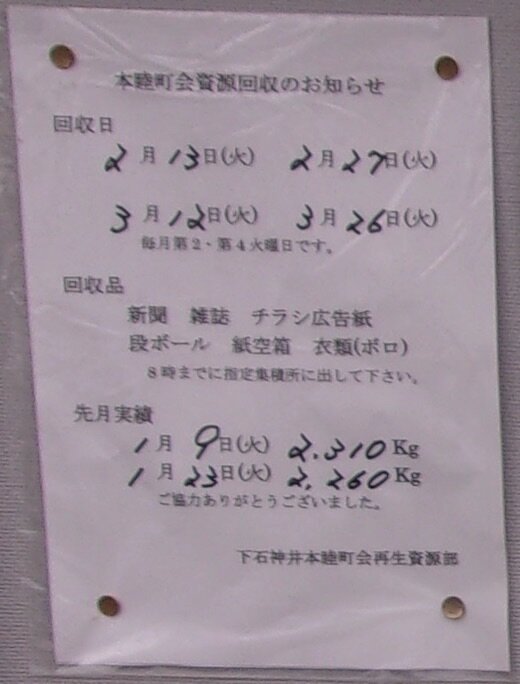 本睦町会資源回収のお知らせ
回収日
2月13日(火) 2月27日(火)
3月12日(火) 3月26日(火)
毎月第2・第4火曜日です。
回収品
新聞 雑誌 チラシ広告紙
段ボール 紙空箱 衣類(ボロ)
8時までに指定集積所に出して下さい。
先月実績
1月9日(火) 2.310Kg
1月23日(火) 2,260Kg
ご協力ありがとうございました。
下石神井本睦町会再生資源部